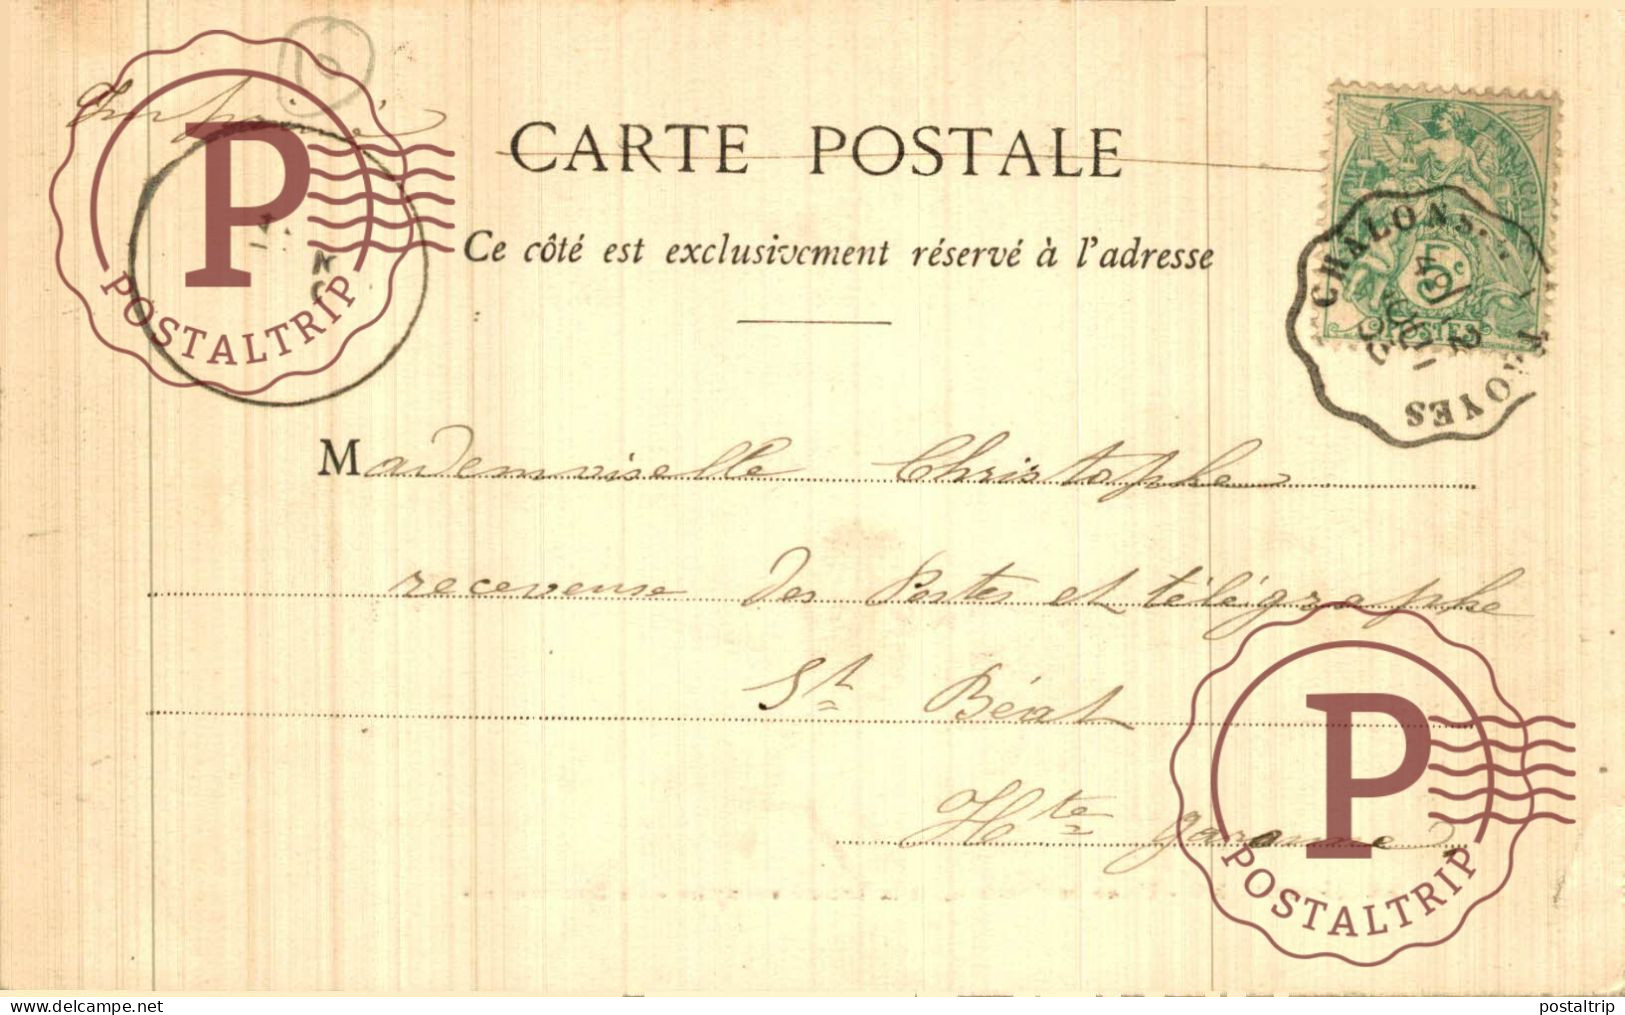 Imprimé
CARTE POSTALE
Ce côté est exclusivement réservé à l'adresse
Mademoiselle Christophe
receveuse des Postes et télégraphe
St Béat
Hte garonne
CHALONS
TROYES
POSTES
5c
P
POSTALTRIP
P
POSTALTRIP
www.delcampe.net
postaltrip